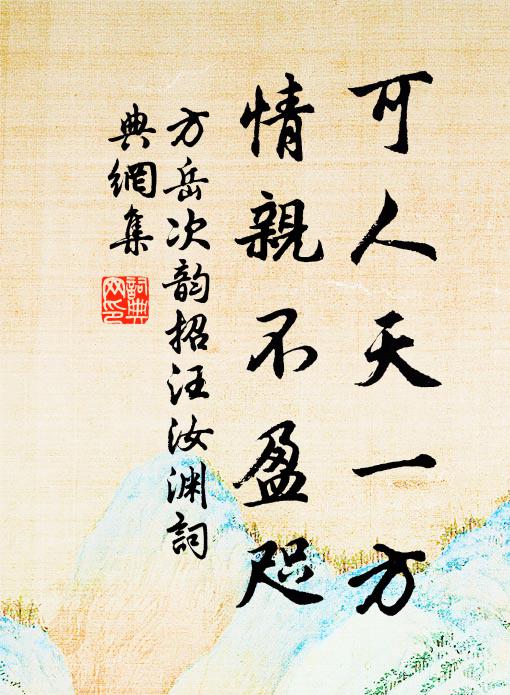 可人天一方
情親不盈咫
方岳次韵招汪汝渊詞
典網集
詞典
网印